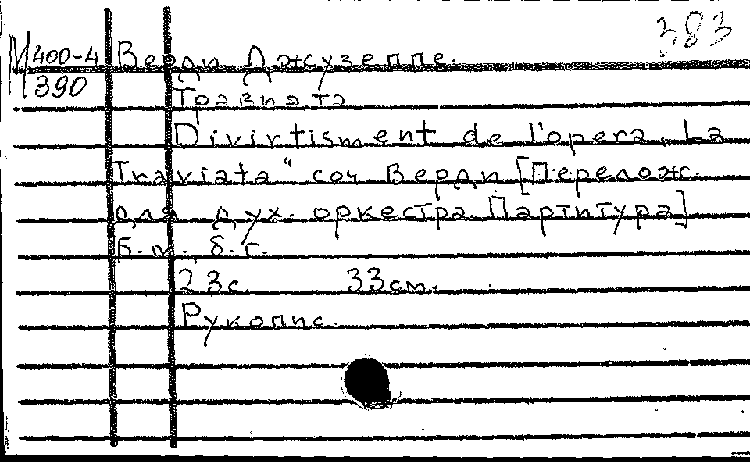 383
М400-4 Верди Джузеппе.
390 Травиата
Divirtisment de l'opera „La
Traviata" соч Верди [Перелож.
для дух. оркестра. Партитура]
Б. м., б. г.
23с. 33см.
Рукопис.